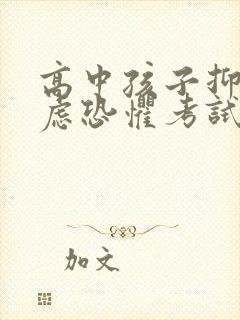 高中孩子抑
虑恐惧考试
加文